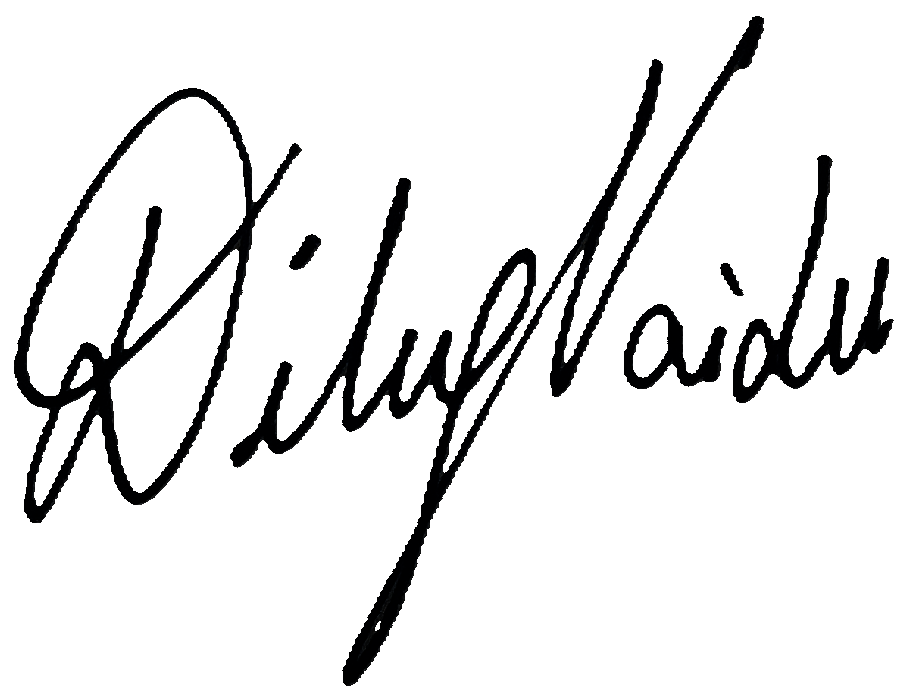 Dilip Naidu